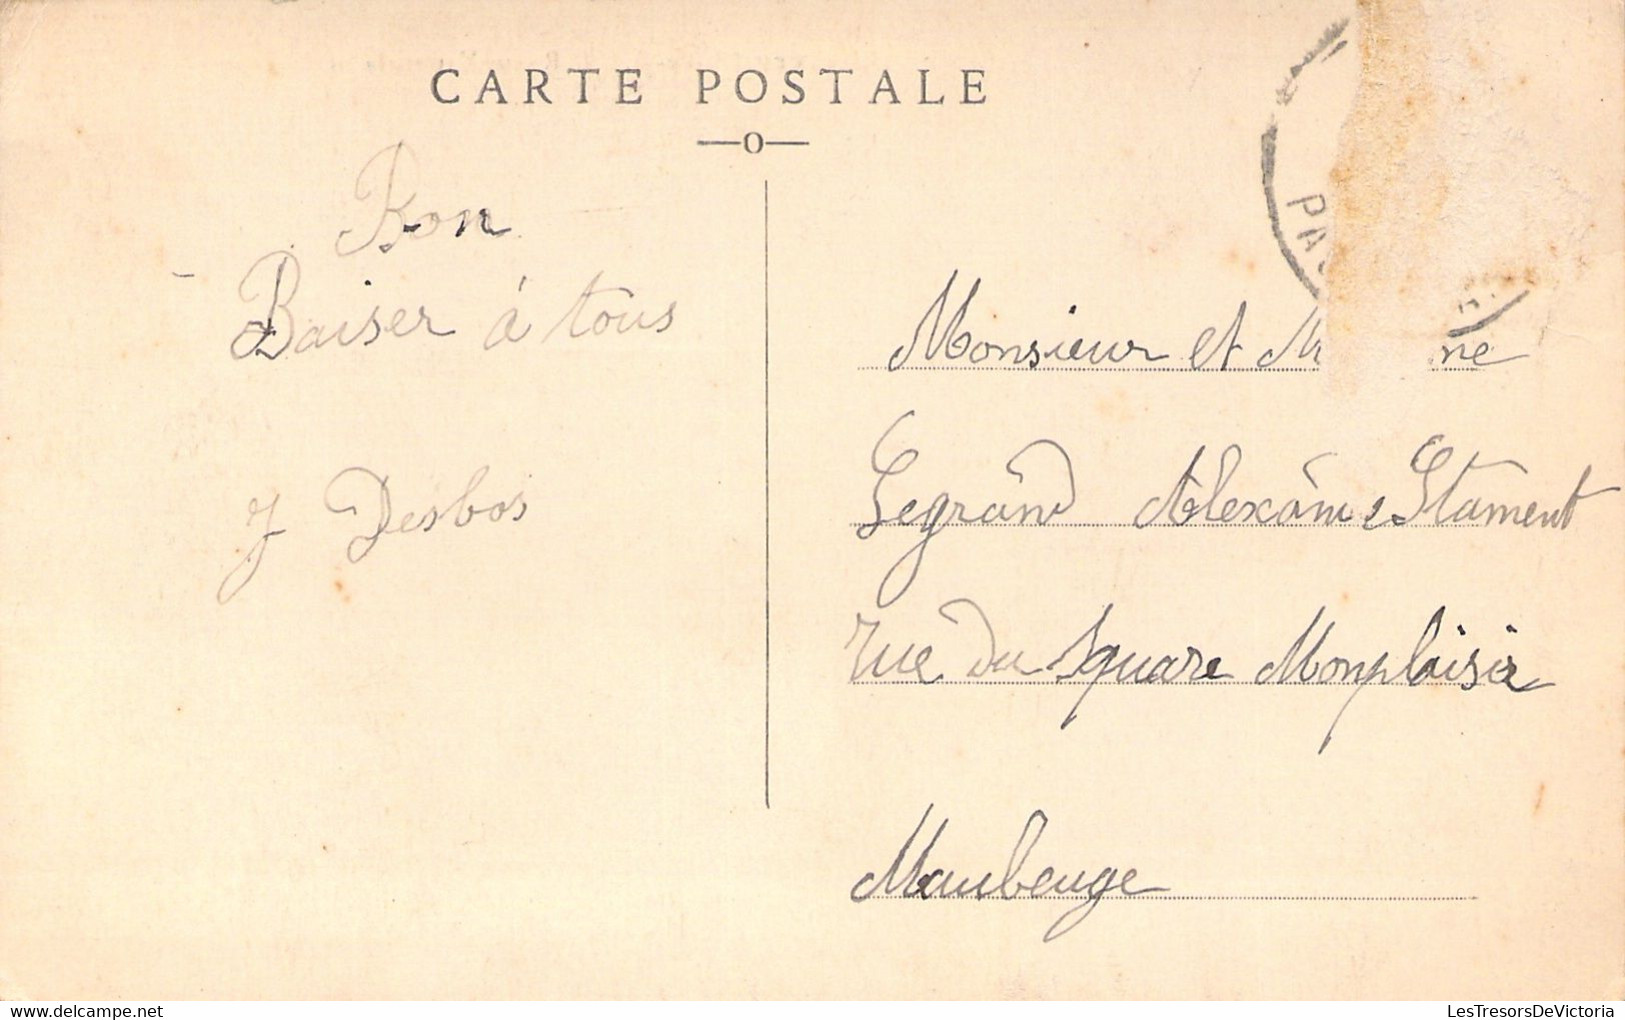 CARTE POSTALE
Bon
Baiser à tous
J Desbos
PA
Monsieur et
Legrand Stament
rue du square Monplaisir
Maubeuge
LesTresorsDeVictoria